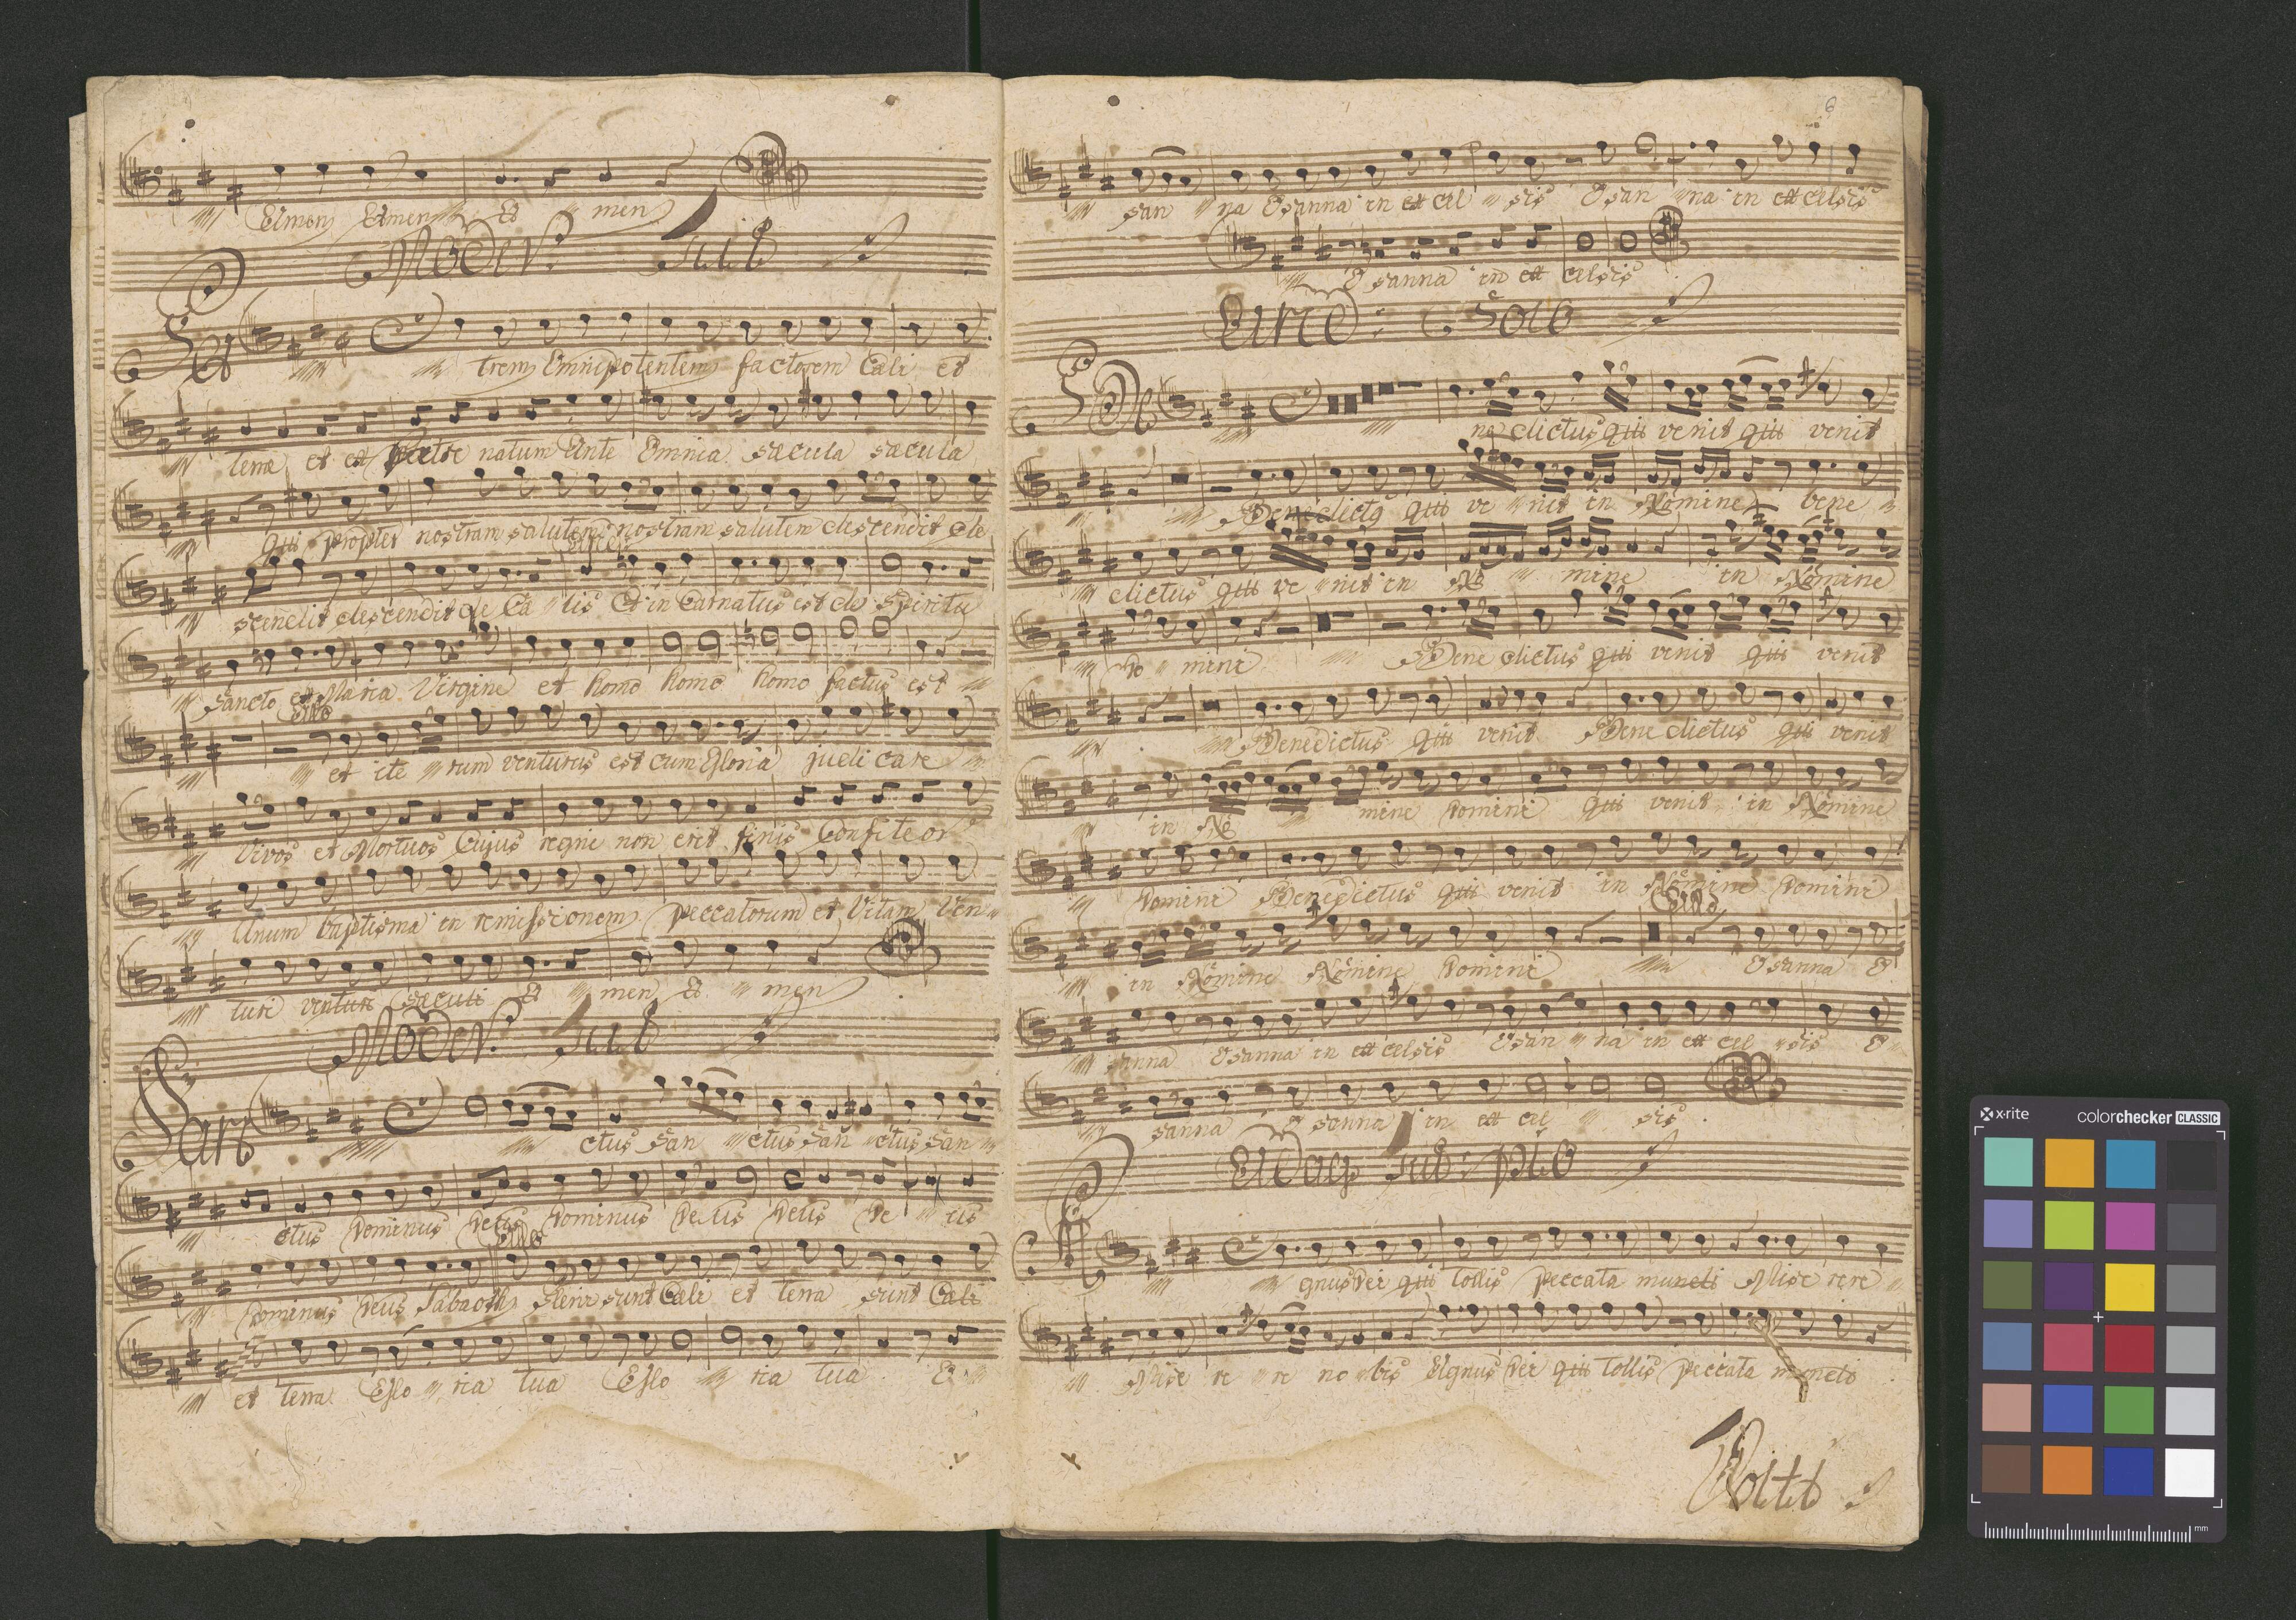 Amen Amen A men
Moder: Tutti
Pa trem Omnipotentem factorem Cæli et
terræ et ex Patre natum Ante Omnia sæcula sæcula
qui propter nostram salutem nostram salutem descendit de
scendit descendit de Cæ lis Et in Carnatus est de Spiritu
Sancto et Maria Virgine et homo homo homo factus est
et ite rum venturus est cum Gloria judicare
Vivos et Mortuos Cujus regni non erit finis Confiteor
Unum baptisma in remissionem peccatorum et Vitam Ven
turi venturi sæculi A men A men
Moder: Tutti
San ctus San ctus San ctus San
ctus Dominus Deus Dominus Deus Deus De us
Dominus Deus Sabaoth Pleni sunt Cæli et terra sunt Cæli
et terra Glo ria tua Glo ria tua O
6
san na Osanna in ex cel sis Osan na in excelsis
O sanna in ex celsis
Solo
Be ne dictus qui venit qui venit
Benedictus qui ve nit in Nomine bene
dictus qui ve nit in No mine in Nomine
Do mini Bene dictus qui venit qui venit
Benedictus qui venit Bene dictus qui venit
in No mine Domini qui venit in Nomine
Domini Benedictus qui venit in Nomine Domini
in Nomine Nomine Domini Osanna O
sanna Osanna in excelsis Osan na in ex cel sis O
sanna O sanna in ex cel sis
Adagio
A gnus Dei qui tollis peccata mundi Mise rere
Mise re re no bis Agnus Dei qui tollis peccata mundi
Volti